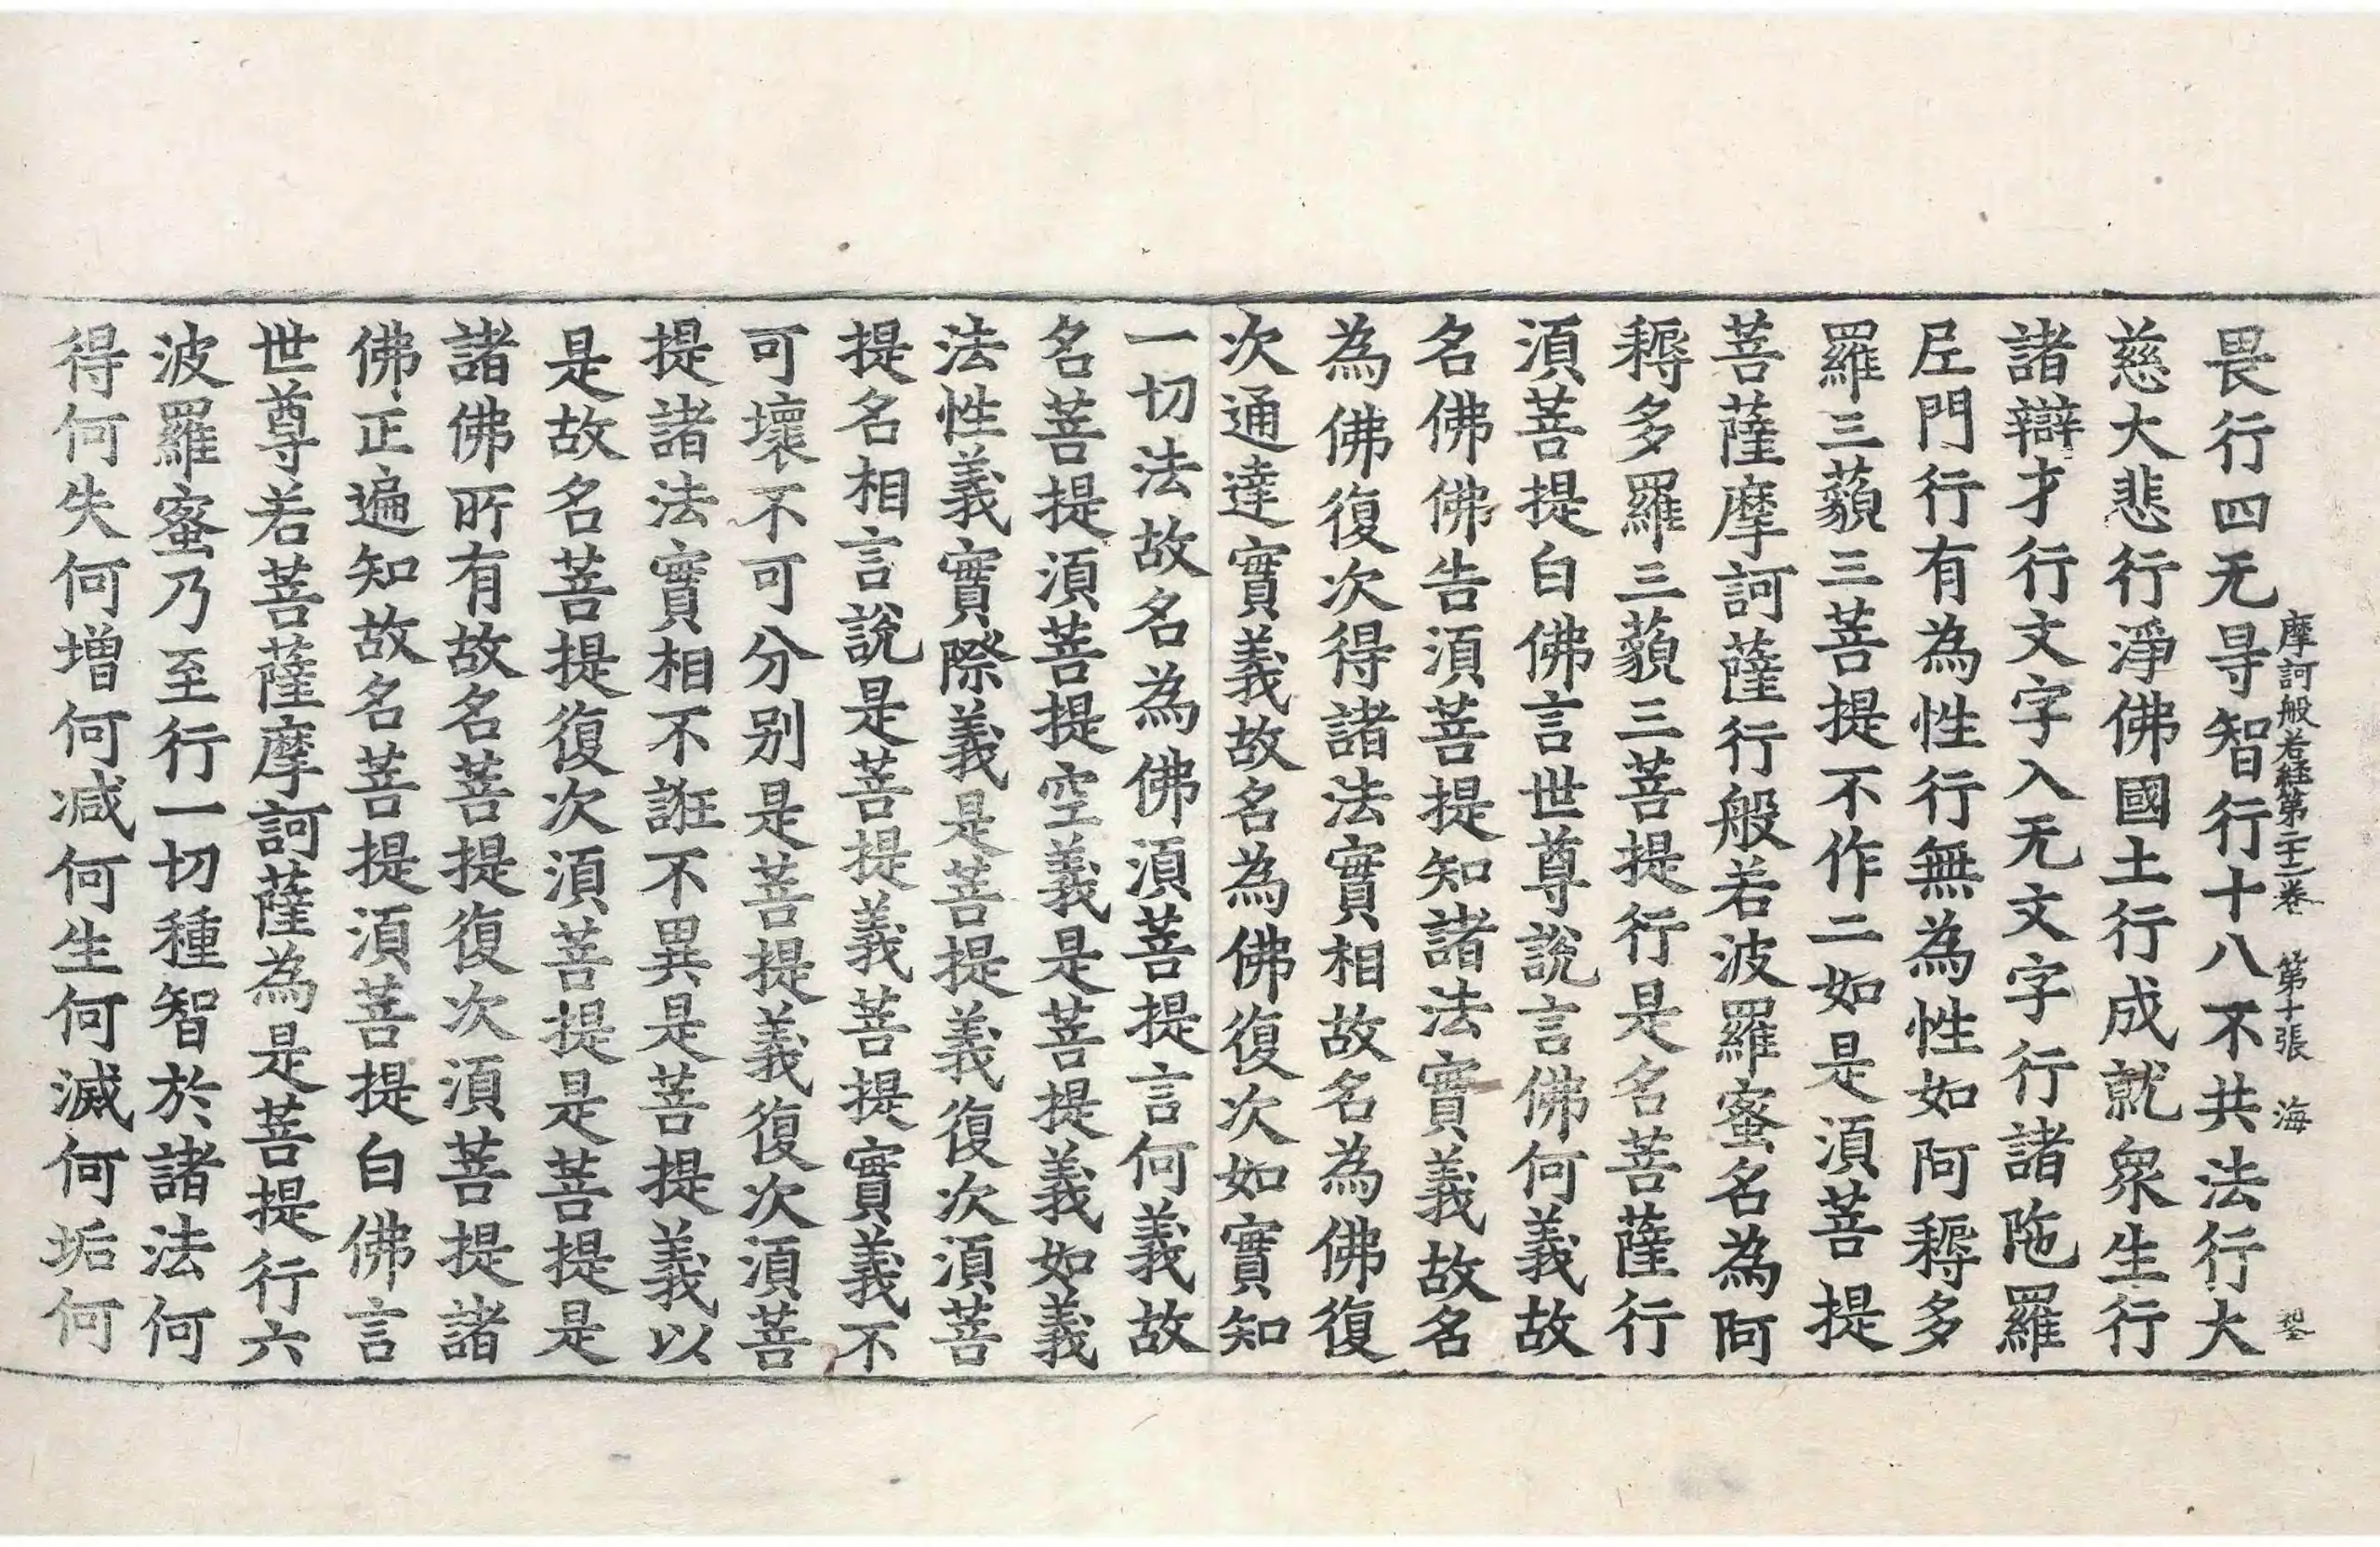 摩訶般若經第二十三卷 第十張 海
畏行四无㝵智行十八不共法行大
慈大悲行淨佛國土行成就衆生行
諸辯才行文字入无文字行諸陁羅
𡰱門行有為性行無為性如阿耨多
羅三藐三菩提不作二如是湏菩提
菩薩摩訶薩行般若波羅蜜名為阿
耨多羅三藐三菩提行是名菩薩行
湏菩提白佛言世尊說言佛何義故
名佛佛告湏菩提知諸法實義故名
為佛復次得諸法實相故名為佛復
次通達實義故名為佛復次如實知
一切法故名為佛湏菩提言何義故
名菩提湏菩提空義是菩提義如義
法性義實際義是菩提義復次湏菩
提名相言說是菩提義菩提實義不
可壞不可分別是菩提義復次湏菩
提諸法實相不誑不異是菩提義以
是故名菩提復次湏菩提是菩提是
諸佛所有故名菩提復次湏菩提諸
佛正遍知故名菩提湏菩提白佛言
世尊若菩薩摩訶薩為是菩提行六
波羅蜜乃至行一切種智於諸法何
得何失何增何减何生何滅何垢何